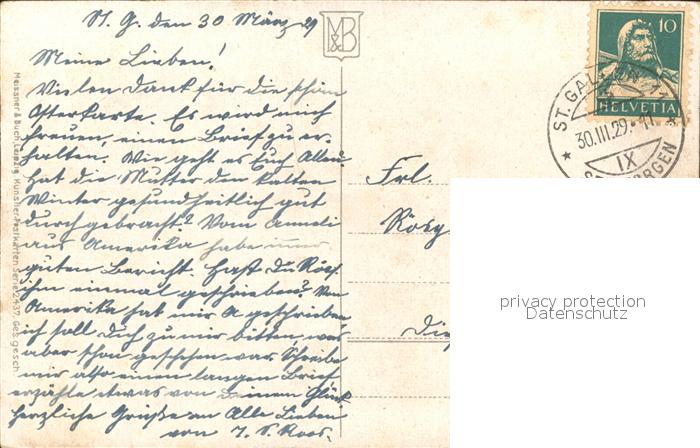 St. G. den 30 März 29
M&B
Meine Lieben!
Vielen Dank für die schöne
Osterkarte. Es wird mich
freuen, einen Brief zu er-
halten. Wie geht es Euch Allen.
Hat die Mutter den kalten
Winter gesundheitlich gut
durchgebracht? Vom Anneli
aus Amerika habe immer
guten Bericht. Hast Du Rösy
ihm einmal geschrieben? Von
Amerika hat mir A geschrieben
ich soll Dich zu mir bitten, was
aber schon geschehen war. Schreibe
mir also einen langen Brief
erzähle etwas von Deinem Glück
Herzliche Grüße an Alle Lieben
von J. S. Roos.
Meissner & Buch, Leipzig Künstler-Postkarten Serie 2437 Ges. gesch.
10
HELVETIA
ST. GALLEN 11
30.III.29. 11
IX
ST. GEORGEN
Frl.
Rösy
privacy protection
Datenschutz